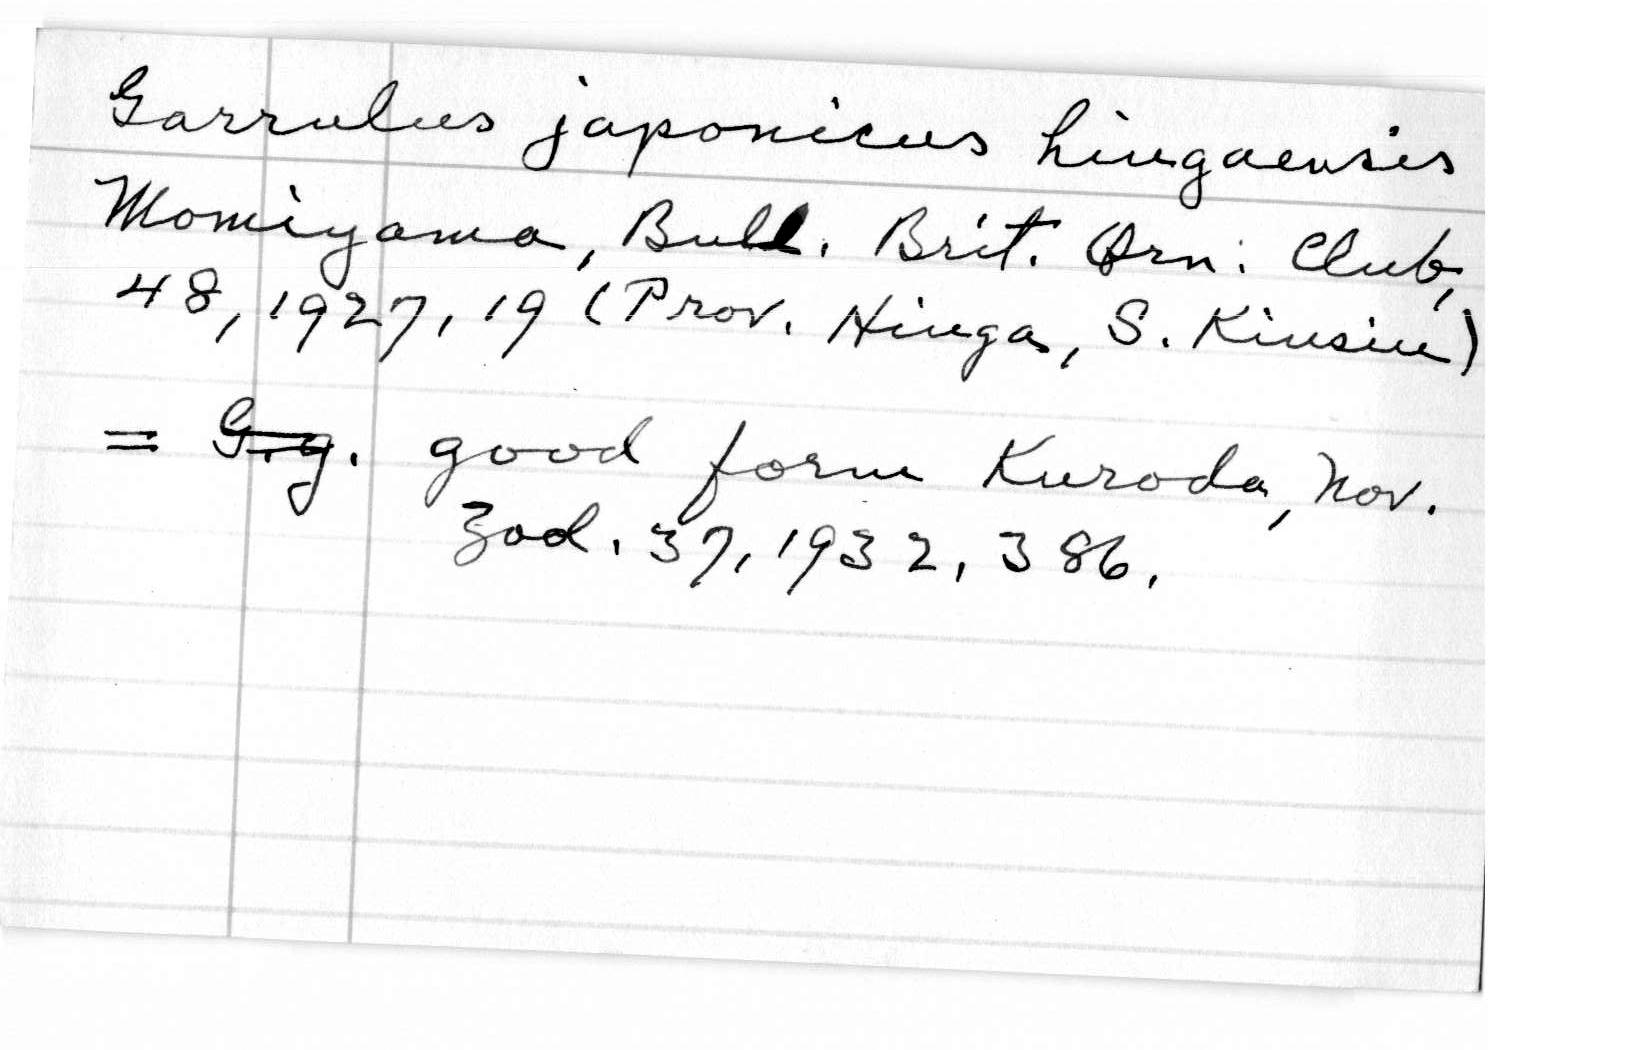 Garrulus japonicus hiugaensis
Momiyama, Bull. Brit. Orn. Club,
48, 1927, 19 (Prov. Hiuga, S. Kiusiu)
= G. g. good form Kuroda, Nov.
Zool. 37, 1932, 386.